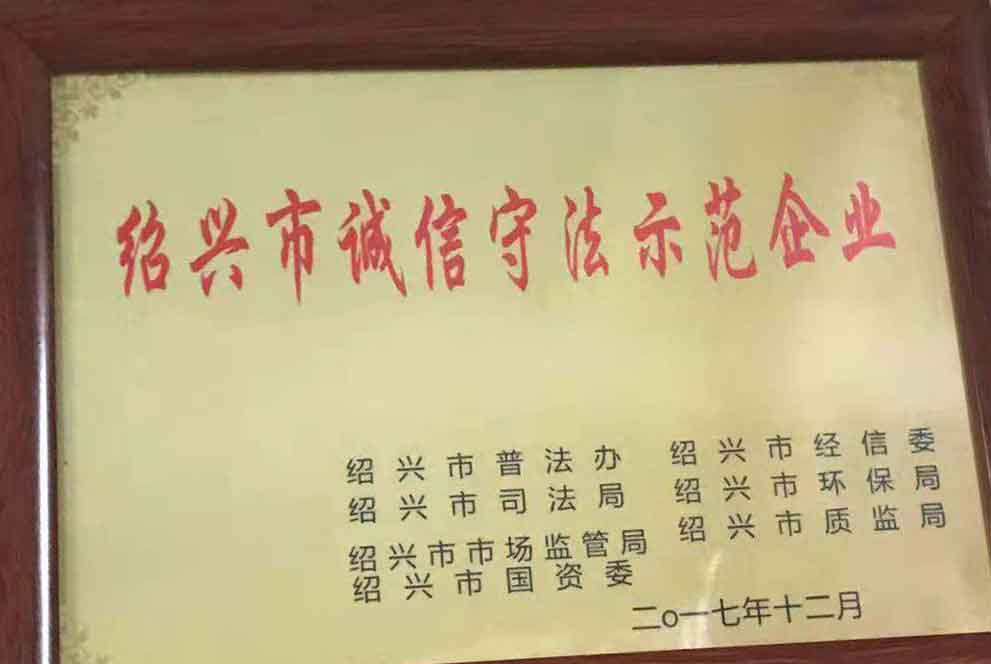 绍兴市诚信守法示范企业
绍兴市普法办 绍兴市经信委
绍兴市司法局 绍兴市环保局
绍兴市市场监管局 绍兴市质监局
绍兴市国资委
二〇一七年十二月